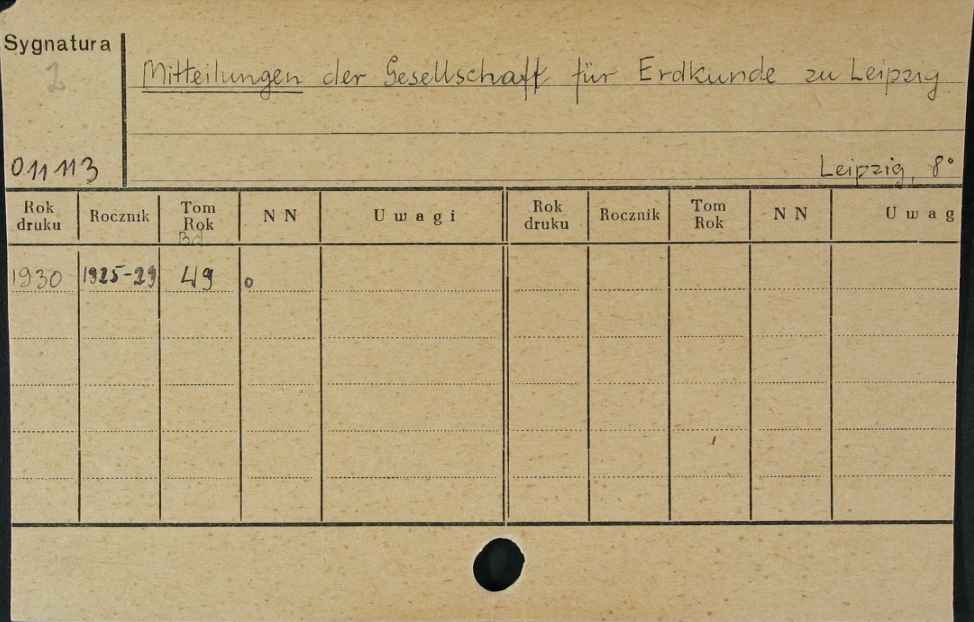 Sygnatura
2
Mitteilungen der Gesellschaft für Erdkunde zu Leipzig
011113
Leipzig, 8°
Rok druku Rocznik Tom Rok NN Uwagi Rok druku Rocznik Tom Rok NN Uwag
Bd
1930 1925-29 49 o